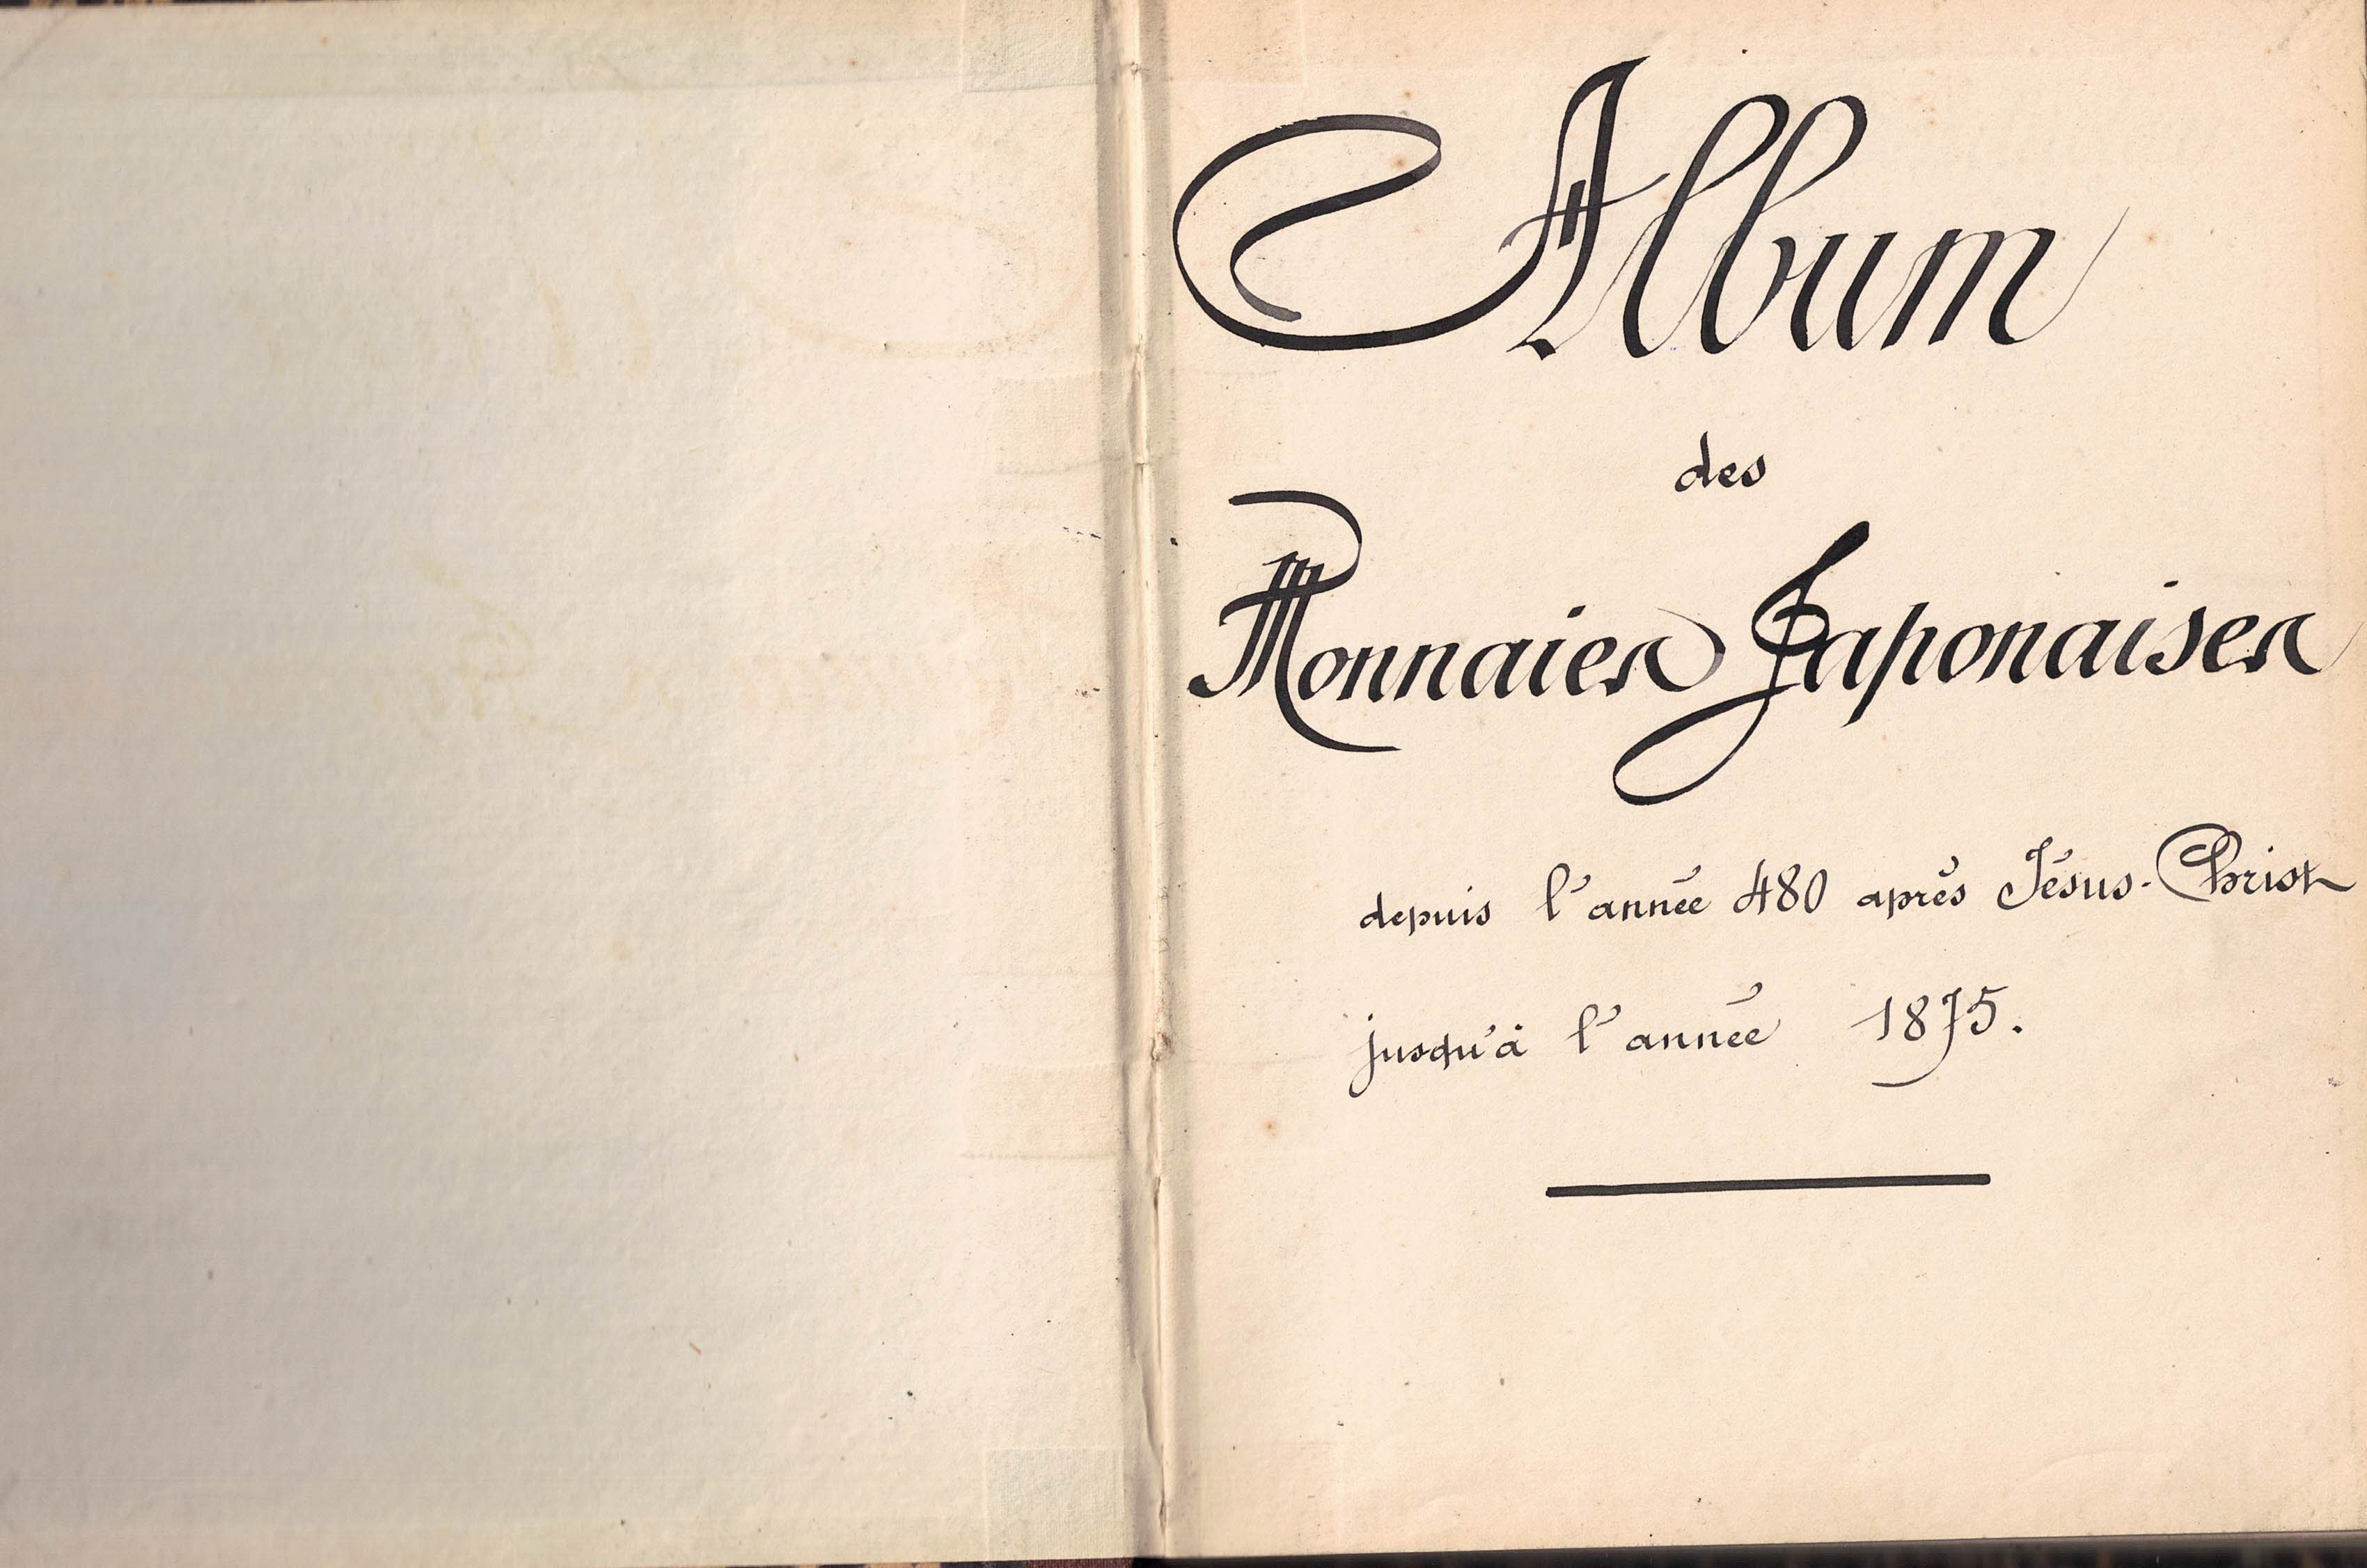 Album
des
Monnaies Japonaises
depuis l'année 480 après Jésus-Christ
jusqu'à l'année 1875.